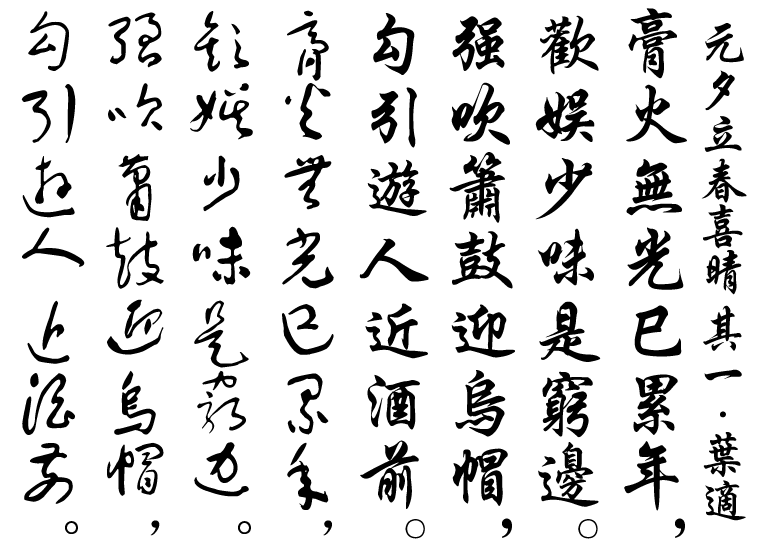 元夕立春喜晴其一·葉適
膏火無光已累年，
歡娛少味是窮邊。
强吹簫鼓迎烏帽，
勾引遊人近酒前。
膏火無光已累年，
歡娛少味是窮邊。
强吹簫鼓迎烏帽，
勾引遊人近酒前。